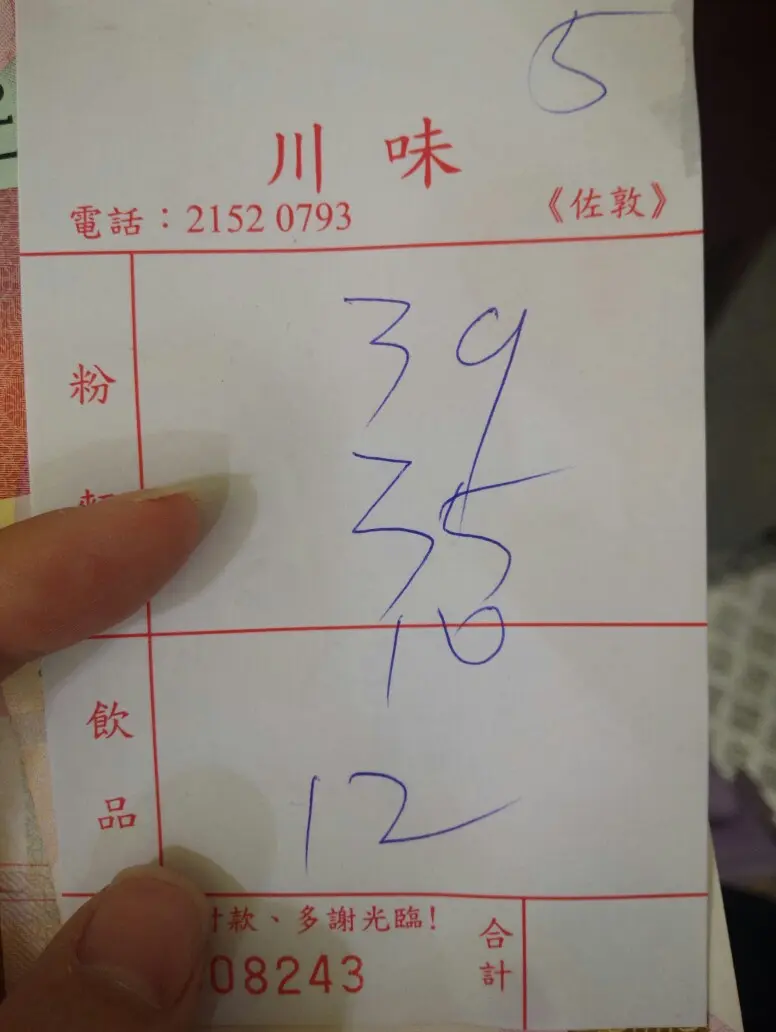 5
川味
電話：2152 0793 《佐敦》
粉
39
35
10
飲品
12
款、多謝光臨！
合計
08243